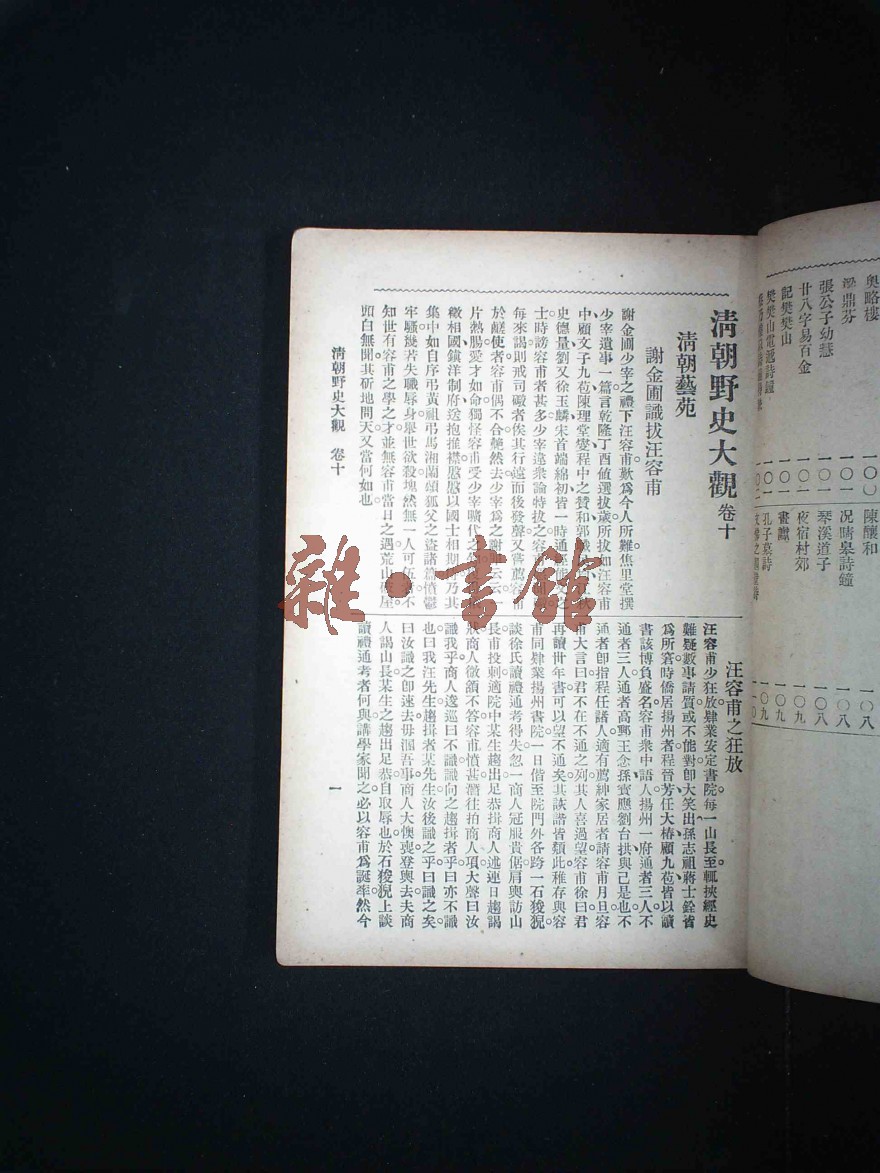 奧略樓
梁鼎芬
張公子幼慧
廿八字易百金
記樊樊山
陳釀和
况晴皋詩鐘
琴溪道子
夜宿村郊
畫讖
孔子墓詩
清朝野史大觀 卷十
清朝藝苑
謝金圃識拔汪容甫
謝金圃少宰之禮下汪容甫歎爲今人所難焦里堂撰
少宰遺事一篇言乾隆丁酉値選拔歲所拔如汪容甫
中顧文子九苞陳理堂燮程中之贊和郭
史德量劉又徐玉麟宋首端綿初皆一時通經能文之
士時謗容甫者甚多少宰違衆論特拔之容甫
每來謁則戒司礮者俟其行遠而後發聲又嘗薦容甫
於鹺使者容甫偶不合艴然去少宰爲之謝
片熱腸愛才如命獨怪容甫受少宰曠代之知
相國鎭洋制府送抱推襟慇慇以國士相期許乃其
集中如自序弔黃祖弔馬湘蘭頌狐父之盜諸篇憤鬱
牢騷幾若失職辱身舉世欲殺塊然無一人可
知世有容甫之學之才並無容甫當日之遇荒山
頭白無聞其斫地問天又當何如也
汪容甫之狂放
汪容甫少狂放肄業安定書院每一山長至輒挾經史
難疑數事請質或不能對卽大笑出孫志祖蔣士銓皆
爲所窘時僑居揚州者程晉芳任大椿顧九苞皆以讀
書該博負盛名容甫衆中語人揚州一府通者三人不
通者三人通者高郵王念孫寶應劉台拱與己是也不
通者卽指程任諸人適有薦紳家居者請容甫月旦容
甫大言曰君不在不通之列其人喜過望容甫徐曰君
再讀卅年書可以望不通矣其詼諧皆類此稚存與容
甫同肄業揚州書院一日偕至院門外各跨一石狻猊
談徐氏讀禮通考得失忽一商人冠服貴倨肩輿訪山
長甫投刺適院中某生趨出足恭揖商人述連日趨謁
狀商人微頷不答容甫憤甚潛往拍商人項大聲曰汝
識我乎商人逡巡曰不識識向之趨揖者乎曰亦不識
也曰我汪先生趨揖者某先生汝後識之乎曰識之矣
曰汝識之卽速去毋溷吾事商人大懊喪登輿去夫商
人謁山長某生之趨出足恭自取辱也於石狻猊上談
讀禮通考者何與講學家聞之必以容甫爲誕率然今
清朝野史大觀 卷十
一
雜·書館